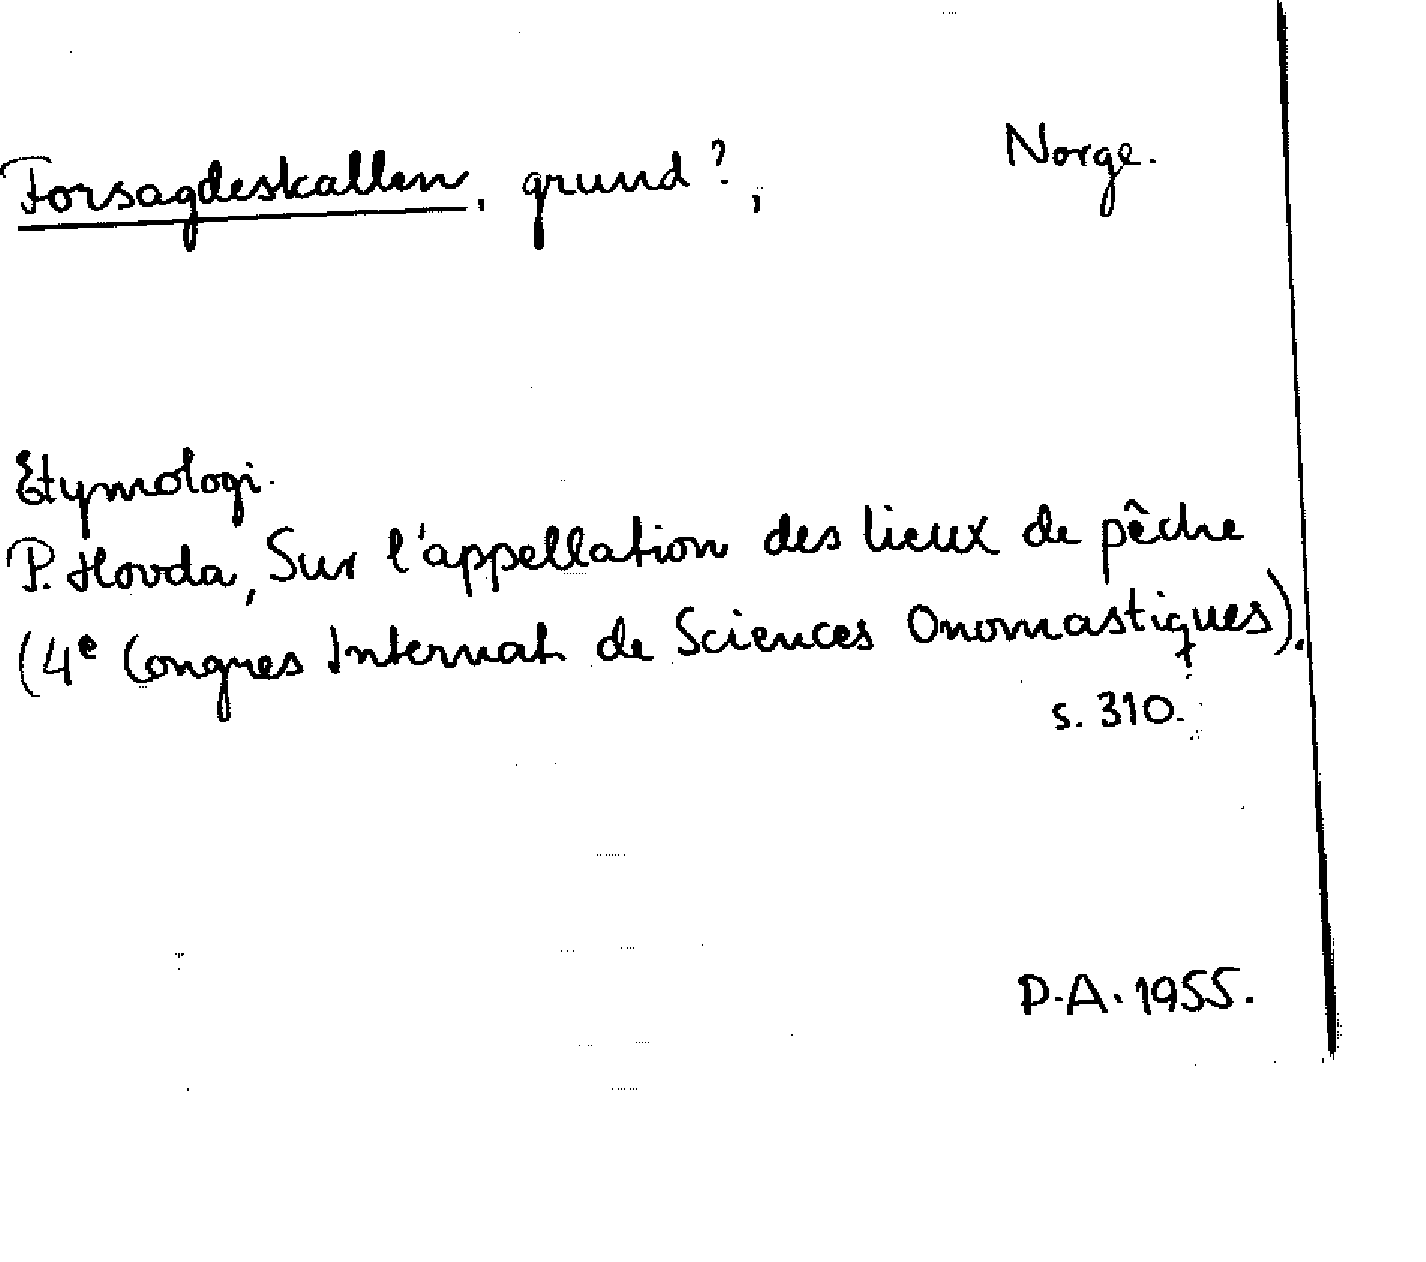 Forsagdeskallen, grund?, Norge.
Etymologi.
P. Hovda, Sur l'appellation des lieux de pêche
(4e Congres Internat. de Sciences Onomastiques).
s. 310.
P.A. 1955.